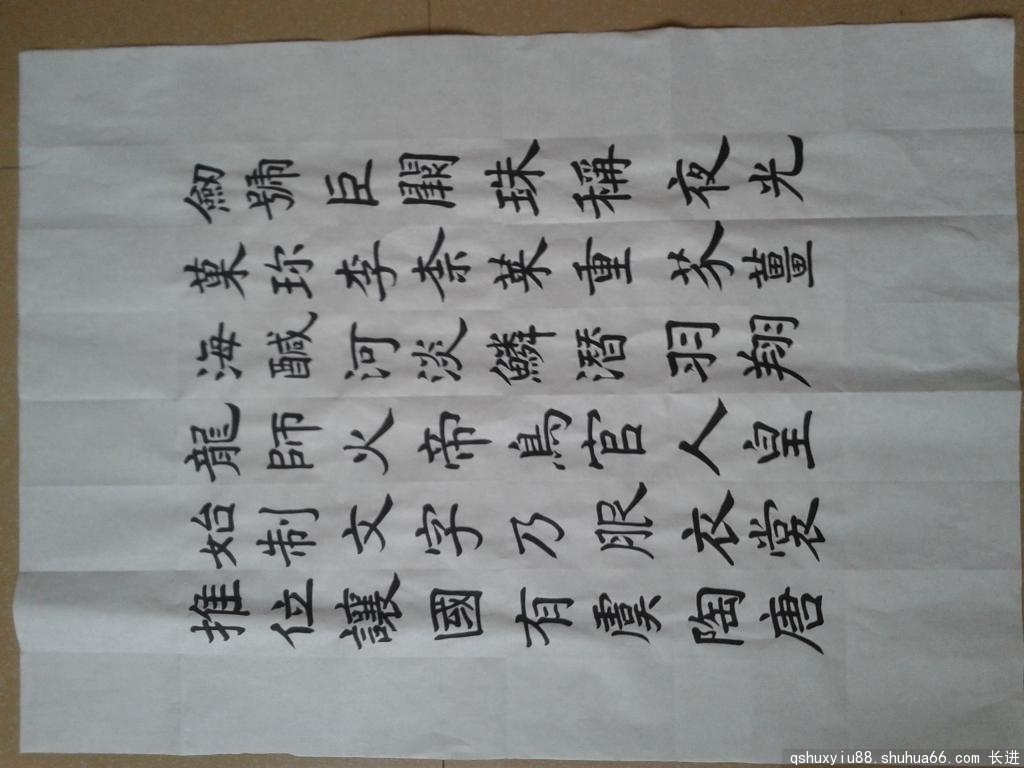 劒號巨闕珠稱夜光
菓珎李柰菜重芥薑
海醎河淡鱗潛羽翔
龍師火帝鳥官人皇
始制文字乃服衣裳
推位讓國有虞陶唐
qshuxyiu88.shuhua66.com 长进